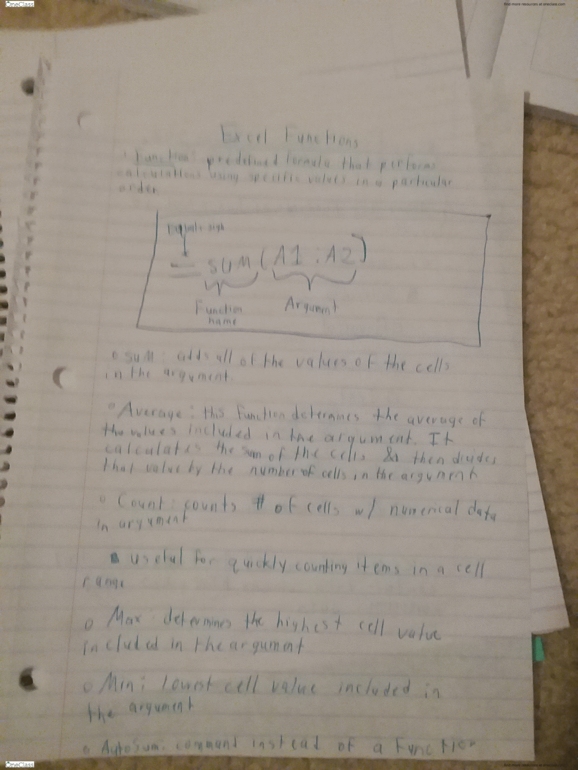 OneClass
Excel Functions
Function: predefined formula that performs
calculations using specific values in a particular
order
Equals sign
= SUM(A1:A2)
Function
name
Argument
o Sum: adds all of the values of the cells
in the argument.
o Average: this function determines the average of
the values included in the argument. It
calculates the sum of the cells & then divides
that value by the number of cells in the argument
o Count: counts # of cells w/ numerical data
in argument
useful for quickly counting items in a cell
range
o Max: determines the highest cell value
included in the argument
o Min: lowest cell value included in
the argument
o AutoSum: command instead of a function
OneClass